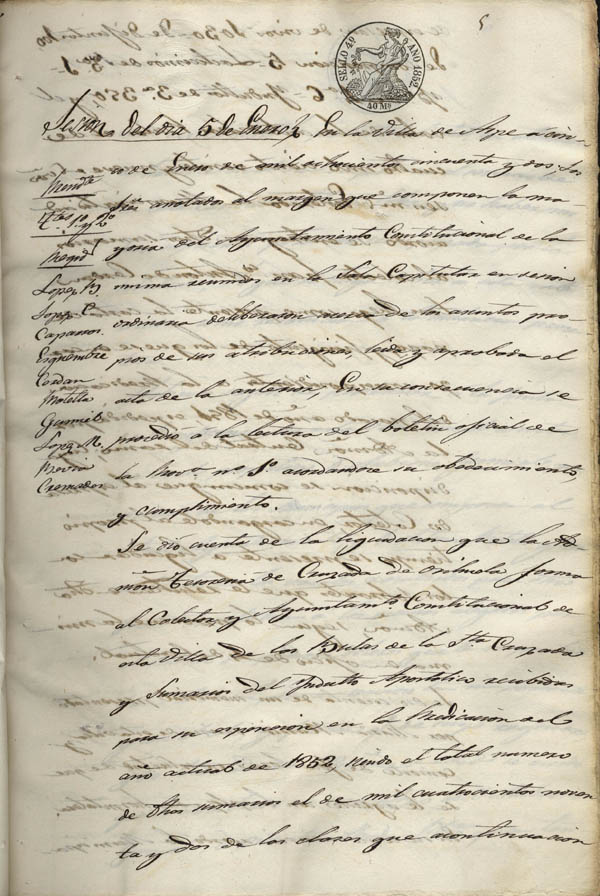 5
SELLO 4º AÑO 1852.
40 Ms
Sesion del dia 5 de Enero. En la Villa de Aspe a cin-
co de Enero de mil ochocientos cincuenta y dos, los
Sres anotados al margen que componen la ma-
yoria del Ayuntamiento Constitucional de la
misma reunidos en la Sala Capitular en sesion
ordinaria deliberacion acerca de los asuntos pro-
pios de sus atribuciones, leida y aprobada el
acta de la anterior, En su consecuencia se
procedió á la lectura del boletin oficial de
la Prova nº 1º acordandose su obedecimiento,
y cumplimiento.
Presidte
4tes 1º y 2º
Regid
Lopez B.
Lopz C.
Caparros
Esquembre
Cerdan
Moletla
Gumiel
Lopez M.
Cremades
Se dió cuenta de la liquidacion que la Ad
mon Tesoreria de Cruzada de Orihuela forma
al Colector y Ayuntamto Constitucional de
esta Villa de las Bulas de la Sta Cruzada
y Sumarios del Indulto Apostolico recibidas
para su espencion en la Predicacion del
año actual de 1852, siendo el total numero
de dhos sumarios el de mil cuatrocientos noven
ta y dos de las clases que acontinuacion